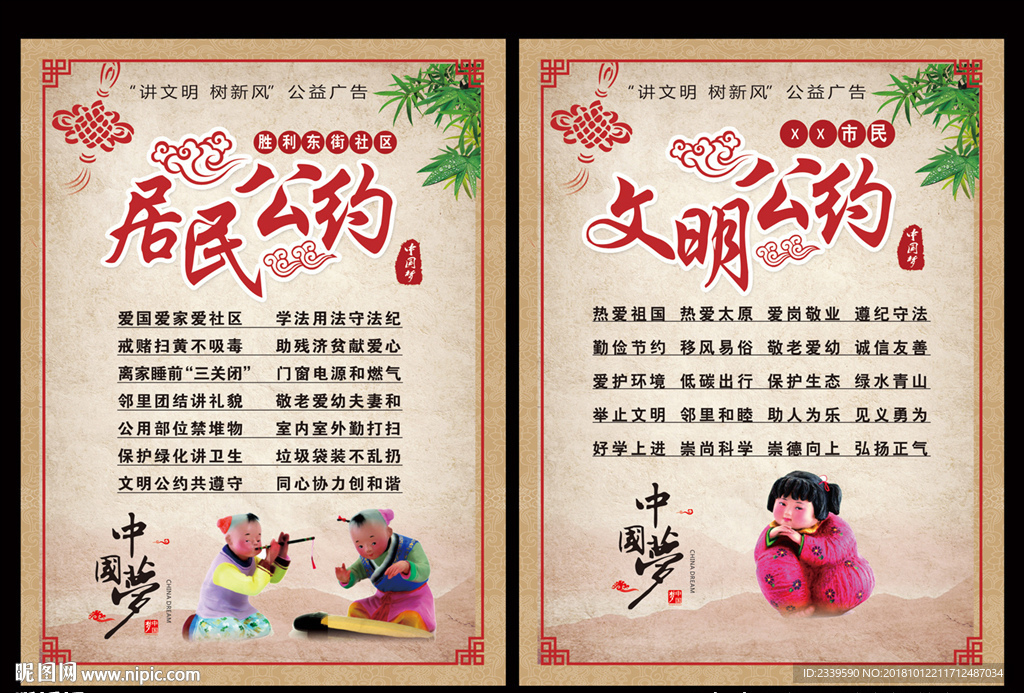 “讲文明 树新风”公益广告
胜利东街社区
居民公约
中国梦
爱国爱家爱社区 学法用法守法纪
戒赌扫黄不吸毒 助残济贫献爱心
离家睡前“三关闭” 门窗电源和燃气
邻里团结讲礼貌 敬老爱幼夫妻和
公用部位禁堆物 室内室外勤打扫
保护绿化讲卫生 垃圾袋装不乱扔
文明公约共遵守 同心协力创和谐
中國夢
CHINA DREAM
中国梦
“讲文明 树新风”公益广告
XX市民
文明公约
中国梦
热爱祖国 热爱太原 爱岗敬业 遵纪守法
勤俭节约 移风易俗 敬老爱幼 诚信友善
爱护环境 低碳出行 保护生态 绿水青山
举止文明 邻里和睦 助人为乐 见义勇为
好学上进 崇尚科学 崇德向上 弘扬正气
中國夢
CHINA DREAM
中国梦
昵图网 www.nipic.com
ID:2339590 NO:20181012211712487034